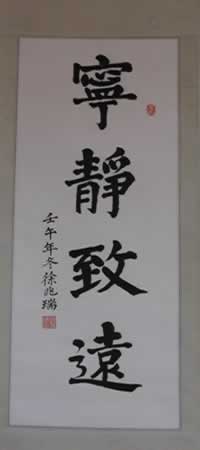 寧靜致遠
壬午年冬徐兆瑞